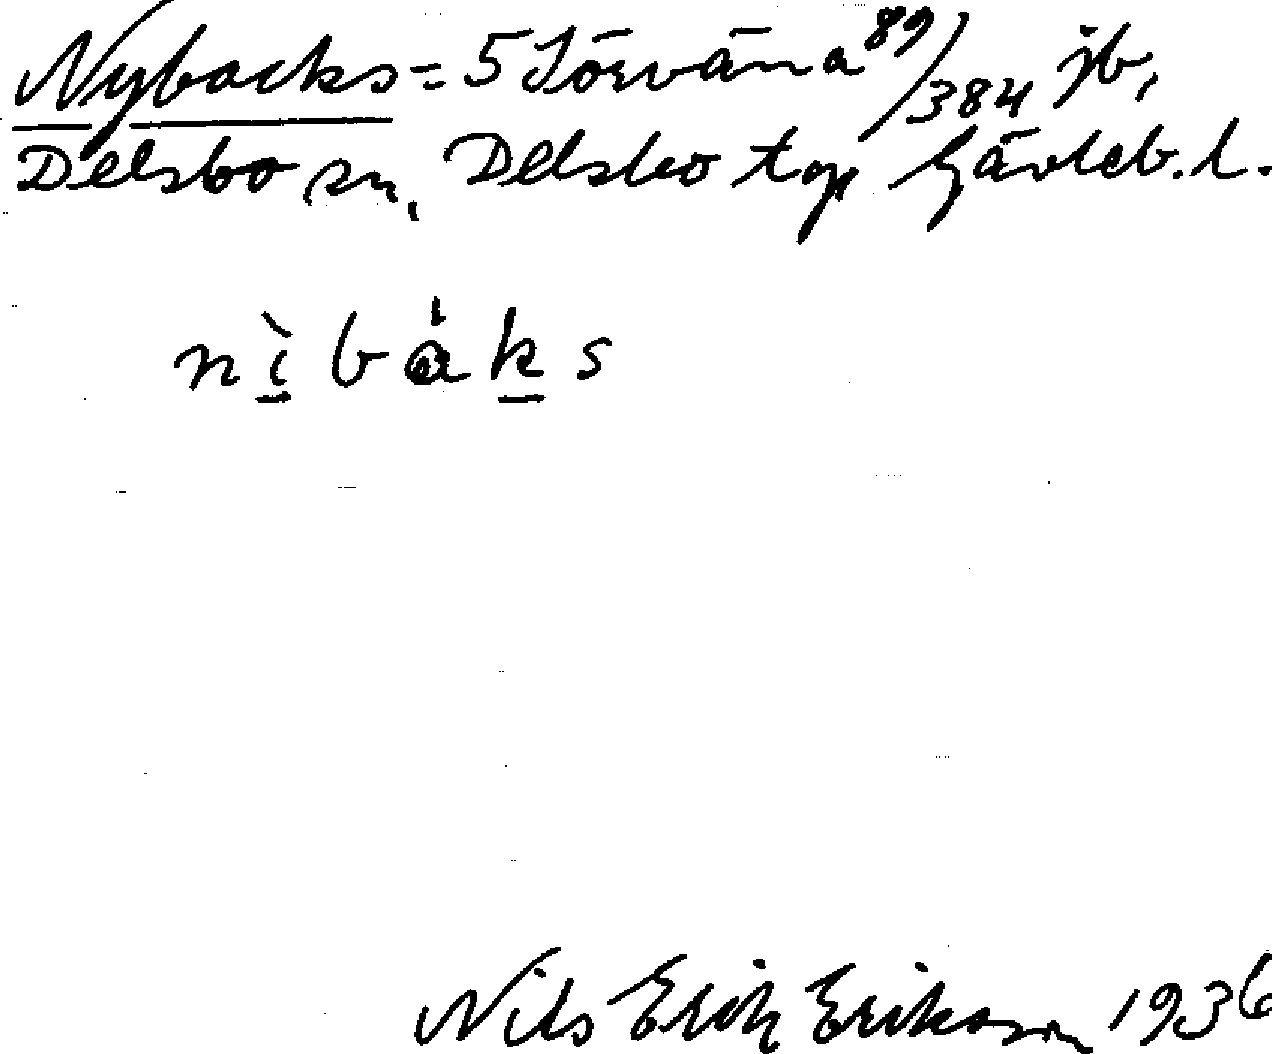 Nybacks = 5 Sörväna 89/384 jb,
Delsbo sn, Delsbo tgs Gävleb. l.
nìbáks
Nils Erik Erikson 1936